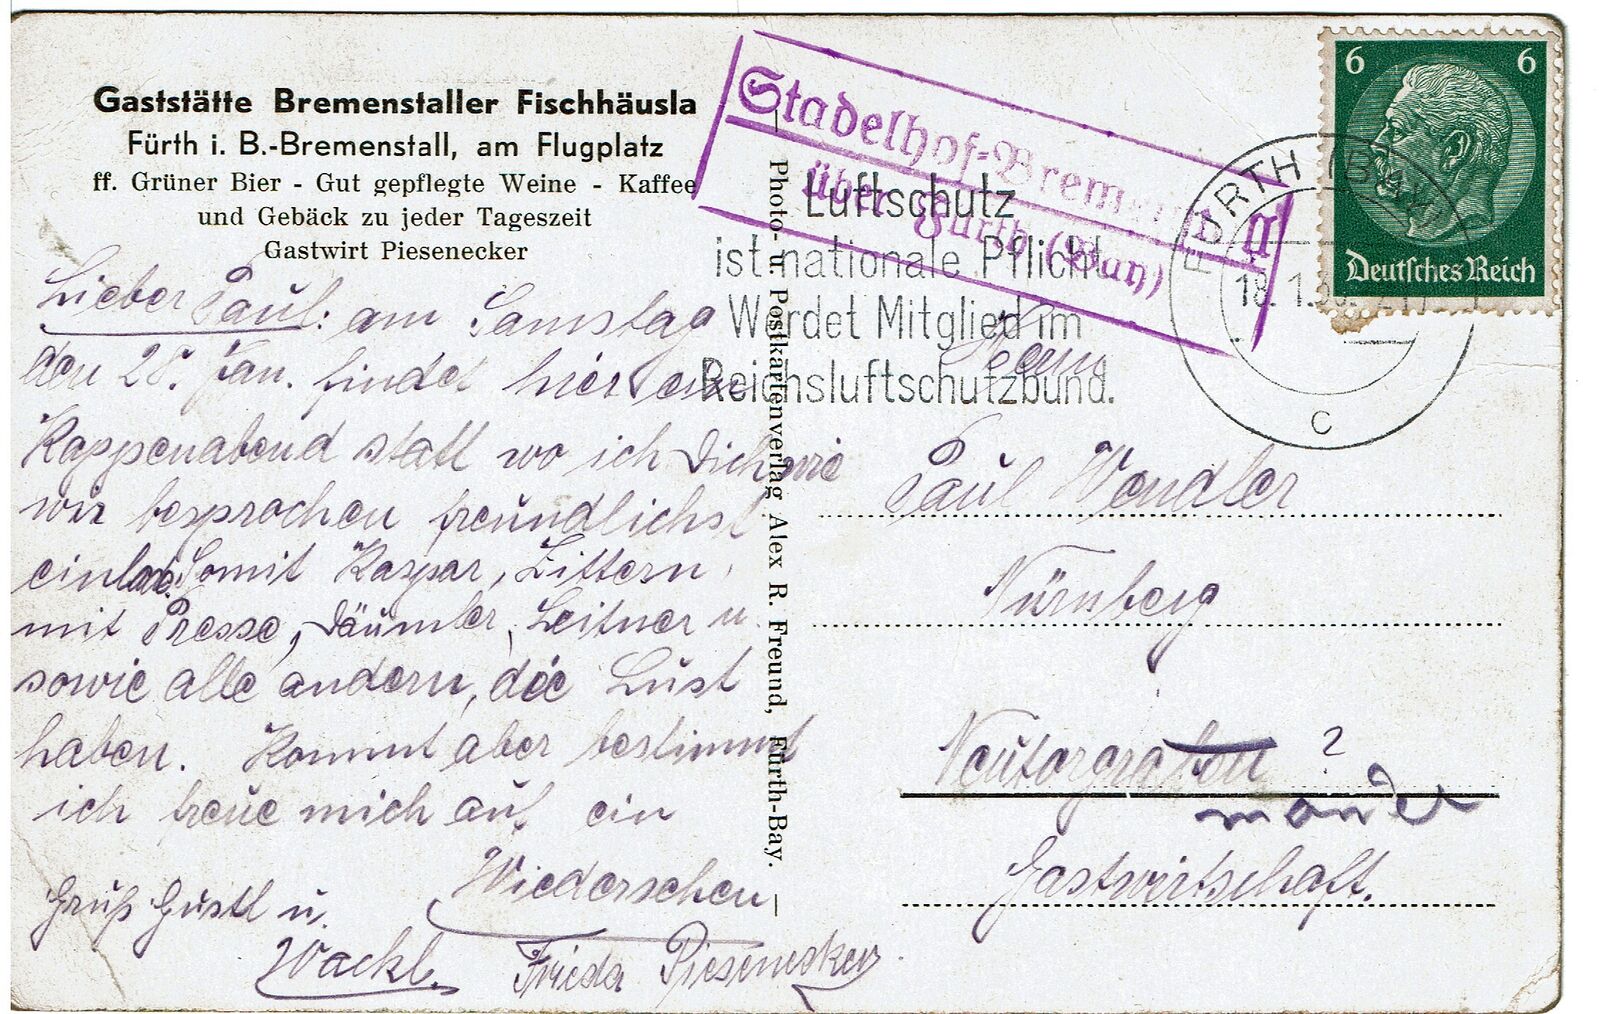 Gaststätte Bremenstaller Fischhäusla
Fürth i. B.-Bremenstall, am Flugplatz
ff. Grüner Bier - Gut gepflegte Weine - Kaffee
und Gebäck zu jeder Tageszeit
Gastwirt Piesenecker
Lieber Paul: am Samstag
den 28. Jan. findet hier ein
Kappenabend statt wo ich Dich wie
wir besprochen freundlichst
einlade. Somit Kaspar, Zittern,
mit Presse, Däumler, Leitner u.
sowie alle andern, die Lust
haben. Kommt aber bestimmt
ich freue mich auf ein
Wiedersehen
Gruß Gustl u.
Wackl.
Frieda Piesenecker
Photo- u. Postkartenverlag Alex R. Freund, Fürth-Bay.
Stadelhof-Bremenstall
über Fürth (Bay)
Luftschutz
ist nationale Pflicht
Werdet Mitglied im
Reichsluftschutzbund.
FÜRTH (BAY)
18. 1.
c
6 6
Deutsches Reich
Herrn
Paul Wendler
Nürnberg
Neutorgraben ?
Gastwirtschaft.